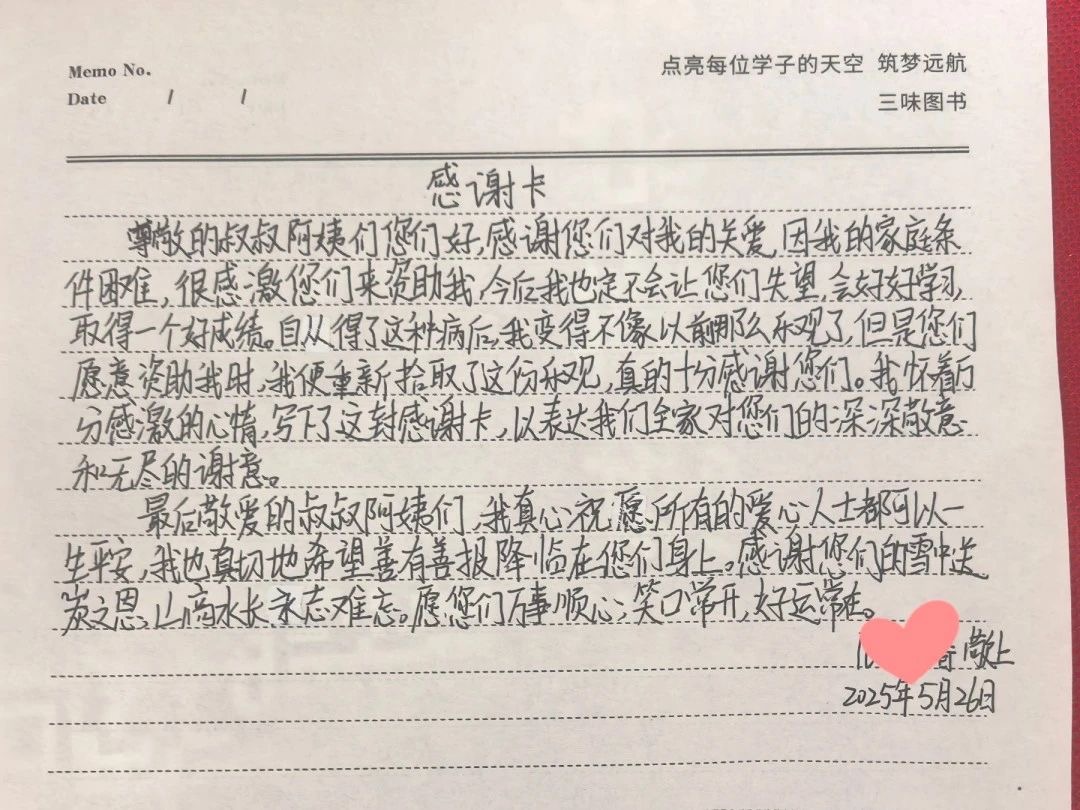 Memo No.
点亮每位学子的天空 筑梦远航
Date / /
三味图书
感谢卡
尊敬的叔叔阿姨们您们好,感谢您们对我的关爱,因我的家庭条
件困难,很感激您们来资助我,今后我也定不会让您们失望,会好好学习,
取得一个好成绩。自从得了这种病后,我变得不像以前那么乐观了,但是您们
愿意资助我时,我便重新拾取了这份乐观,真的十分感谢您们。我怀着万
分感激的心情,写下了这封感谢卡,以表达我们全家对您们的深深敬意
和无尽的谢意。
最后敬爱的叔叔阿姨们,我真心祝愿所有的爱心人士都可以一
生平安,我也真切地希望善有善报降临在您们身上。感谢您们的雪中送
炭之恩,山高水长永志难忘。愿您们万事顺心,笑口常开,好运常在。
敬上
2025年5月26日